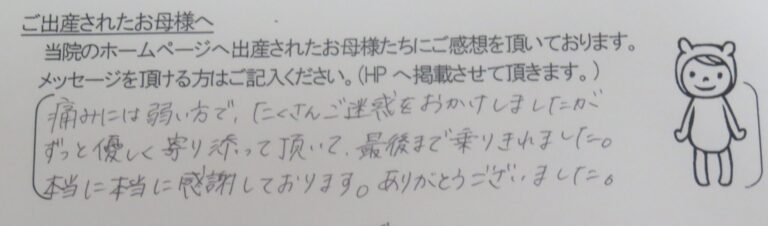 ご出産されたお母様へ
当院のホームページへ出産されたお母様たちにご感想を頂いております。
メッセージを頂ける方はご記入ください。(HPへ掲載させて頂きます。)
痛みには弱い方で、たくさんご迷惑をおかけしましたが
ずっと優しく寄り添って頂いて、最後まで乗りきれました。
本当に本当に感謝しております。ありがとうございました。